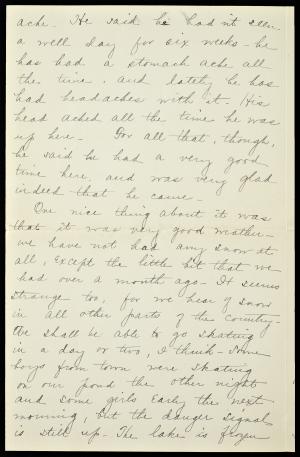 ache. He said he hadn't seen
a well day for six weeks - he
has had a stomach ache all
the time, and lately he has
had headaches with it. His
head ached all the time he was
up here - For all that, though,
he said he had a very good
time here, and was very glad
indeed that he came -
One nice thing about it was
that it was very good weather -
we have not had any snow at
all, except the little bit that we
had over a month ago - It seems
strange too, for we hear of snow
in all other parts of the country -
We shall be able to go skating
in a day or two, I think - Some
boys from town were skating
on our pond the other night
and some girls early the next
morning, but the danger signal
is still up - The lake is frozen